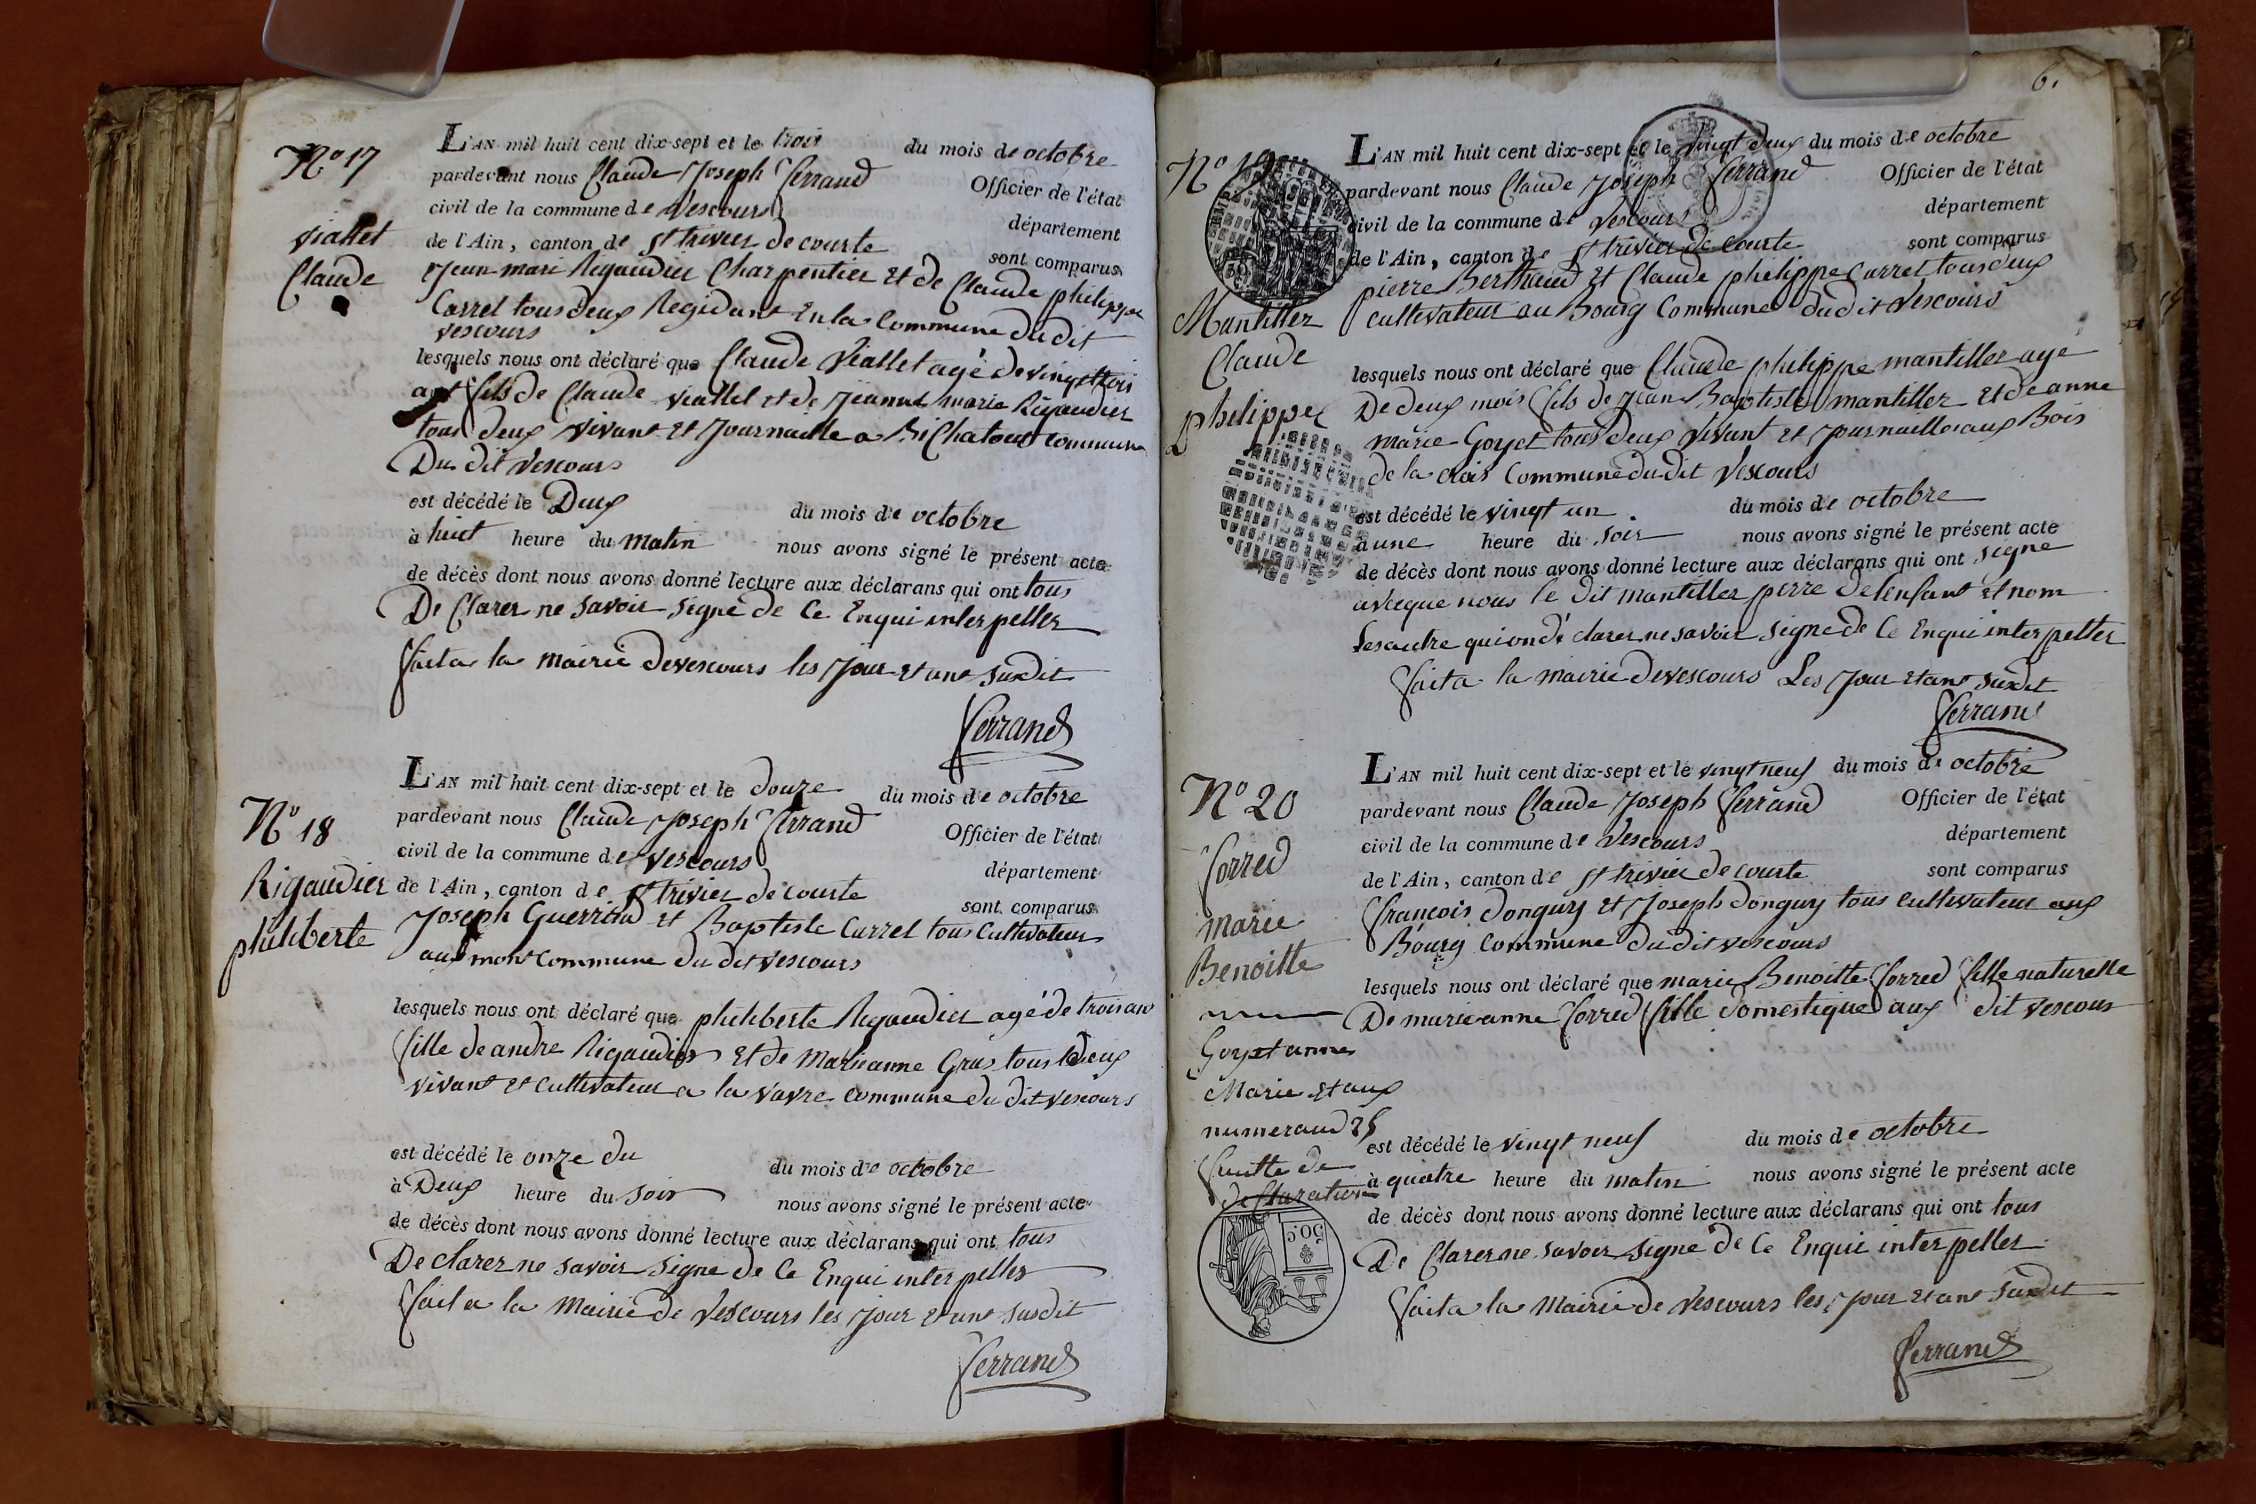 N.o 17
viallet
Claude
L'AN mil huit cent dix-sept et le trois du mois de octobre
pardevant nous Claude Joseph Ferrand Officier de l'état
civil de la commune de Vescours département
de l'Ain, canton de St trivier de courte sont comparus
Jean mari Rigaudier Charpentier Et de Claude philippe
Carrel tous deux Regidant En la Commune du dit
vescours
lesquels nous ont déclaré que Claude Viallet agé de vingt trois
ant fils de Claude viallet et de Jeanne marie Rigaudier
tous deux vivant Et Journaille a commune
Du dit vescours
est décédé le Deux du mois de octobre
à huit heure du matin nous avons signé le présent acte
de décès dont nous avons donné lecture aux déclarans qui ont tous
De Clarer ne savoir signé de Ce Enqui inter peller
fait a la mairie de vescours les Jour et ant susdit
Ferrand
N.o 18
Rigaudier
philiberte
L'AN mil huit cent dix-sept et le douze du mois de octobre
pardevant nous Claude Joseph Ferrand Officier de l'état
civil de la commune de vescours département
de l'Ain, canton de St trivier de courte sont comparus
Joseph Guerrin Et Baptiste Carrel tous Cultivateur
aux mont commune du dit vescours
lesquels nous ont déclaré que philiberte Rigaudier agé de trois ans
fille de andre Rigaudier Et de Marianne Gras tous deux
vivant et cultivateur a la vavre commune du dit vescours
est décédé le onze du du mois de octobre
à Deux heure du soir nous avons signé le présent acte
de décès dont nous avons donné lecture aux déclarans qui ont tous
De clarer ne savoir signe de Ce Enqui inter peller
fait a la Mairie de vescours les Jour et ant susdit
Ferrand
6.
N.o 19
Mantiller
Claude
philippe
L'AN mil huit cent dix-sept et le vingt deux du mois de octobre
pardevant nous Claude Joseph Ferrand Officier de l'état
civil de la commune de vescours département
de l'Ain, canton de St trivier de courte sont comparus
pierre Berthaud Et Claude philippe Carrel tous deux
cultivateur au Bourg Commune du dit vescours
lesquels nous ont déclaré que Claude philippe mantiller agé
De deux mois fils de Jean Baptiste mantiller Et de anne
marie Goyet tous deux vivant et Journaille aux Bois
de la crois Commune du dit vescours
est décédé le vingt un du mois de octobre
à une heure du soir nous avons signé le présent acte
de décès dont nous avons donné lecture aux déclarans qui ont signe
avecque nous le dit mantiller perre de lenfant et nom
les autre qui on dé clarer ne savoir signe de Ce Enqui inter peller
fait a la mairie de vescours Les Jour et ant susdit
Ferrand
N.o 20
Corred
marie
Benoitte
Goyet anne
Marie et aux
numeraud 25
fuitte de
de Claration
50 c
L'AN mil huit cent dix-sept et le vingt neuf du mois de octobre
pardevant nous Claude Joseph Ferrand Officier de l'état
civil de la commune de vescours département
de l'Ain, canton de St trivier de courte sont comparus
francois donguy et Joseph donguy tous cultivateur aux
Bourg commune du dit vescours
lesquels nous ont déclaré que marie Benoitte Corred fille naturelle
De marie anne Corred fille domestique aux dit vescour
est décédé le vingt neuf du mois de octobre
à quatre heure du matin nous avons signé le présent acte
de décès dont nous avons donné lecture aux déclarans qui ont tous
De Clarer ne savoir signe de Ce Enqui inter peller
fait a la Mairie de vescours les Jour et ant susdit
Ferrand